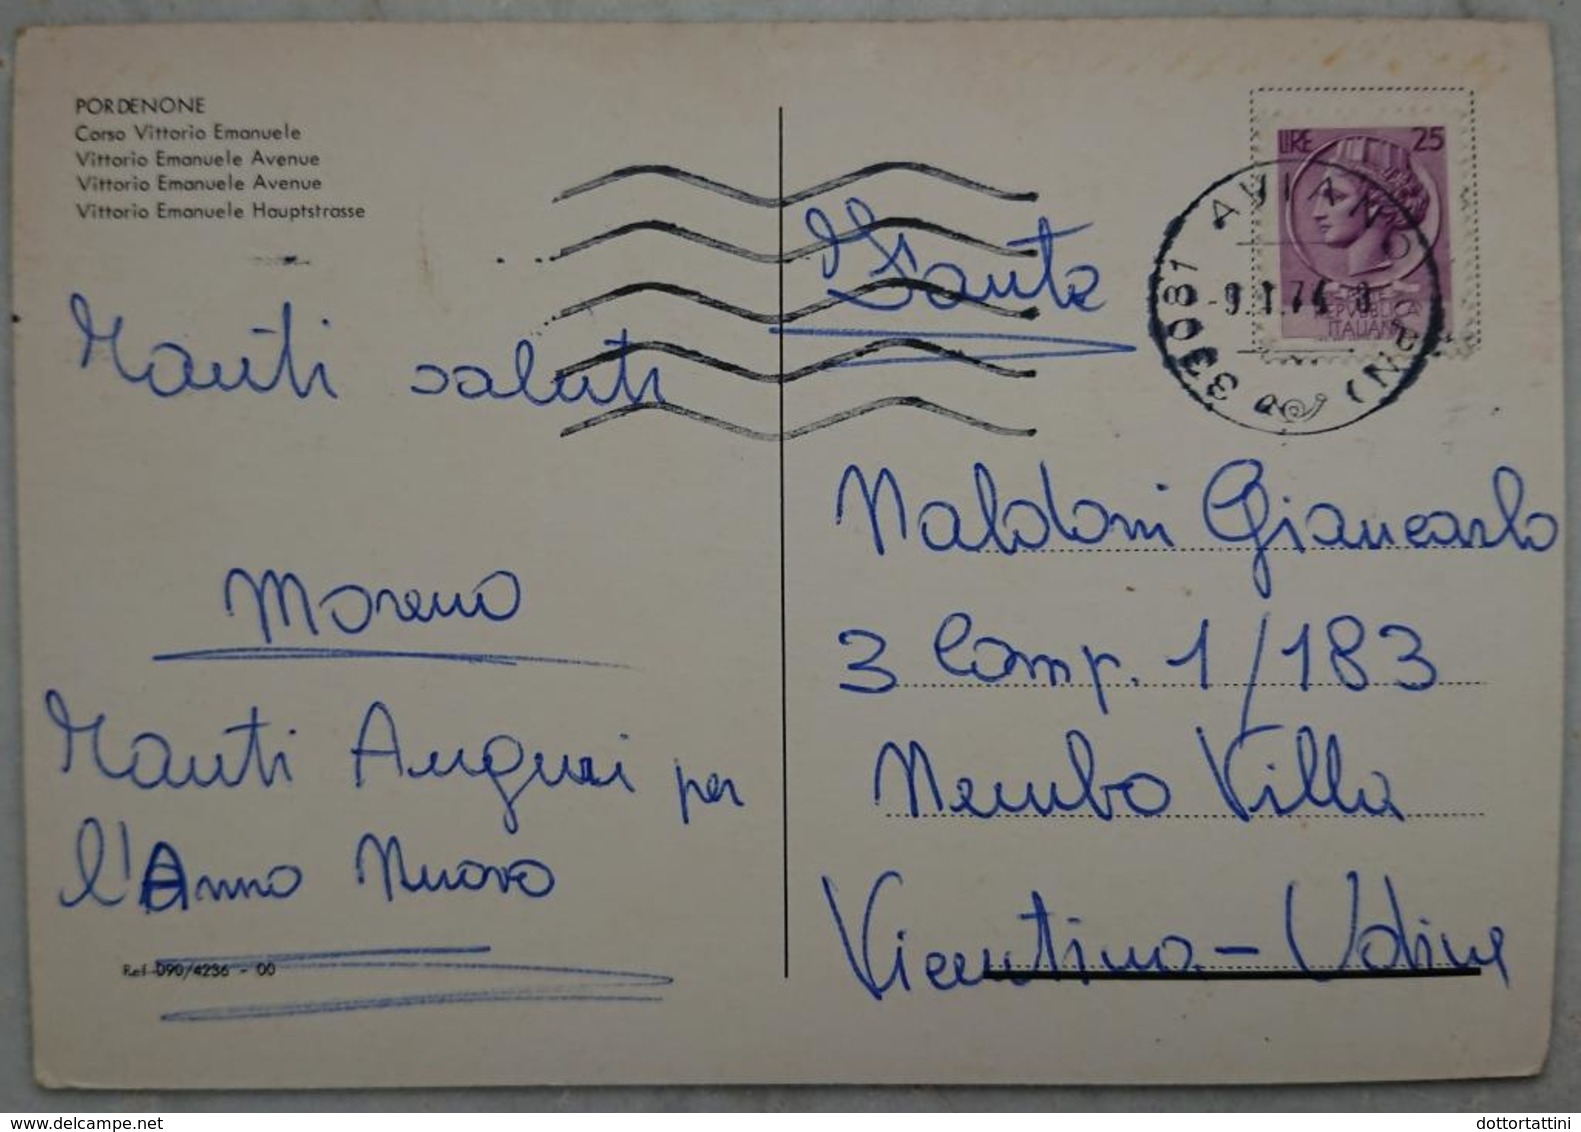 PORDENONE
Corso Vittorio Emanuele
Vittorio Emanuele Avenue
Vittorio Emanuele Avenue
Vittorio Emanuele Hauptstrasse
Manti saluti
Moreno
Manti Auguri per
l'Anno Nuovo
Ref 090/4236 - 00
LIRE 25
REPVBBLICA
ITALIANA
33081 AVIANO (PN)
-9.1.74
Naldoni Giancarlo
3 Comp. 1/183
Nembo Villa
Vicentina - Udine
dottortattini